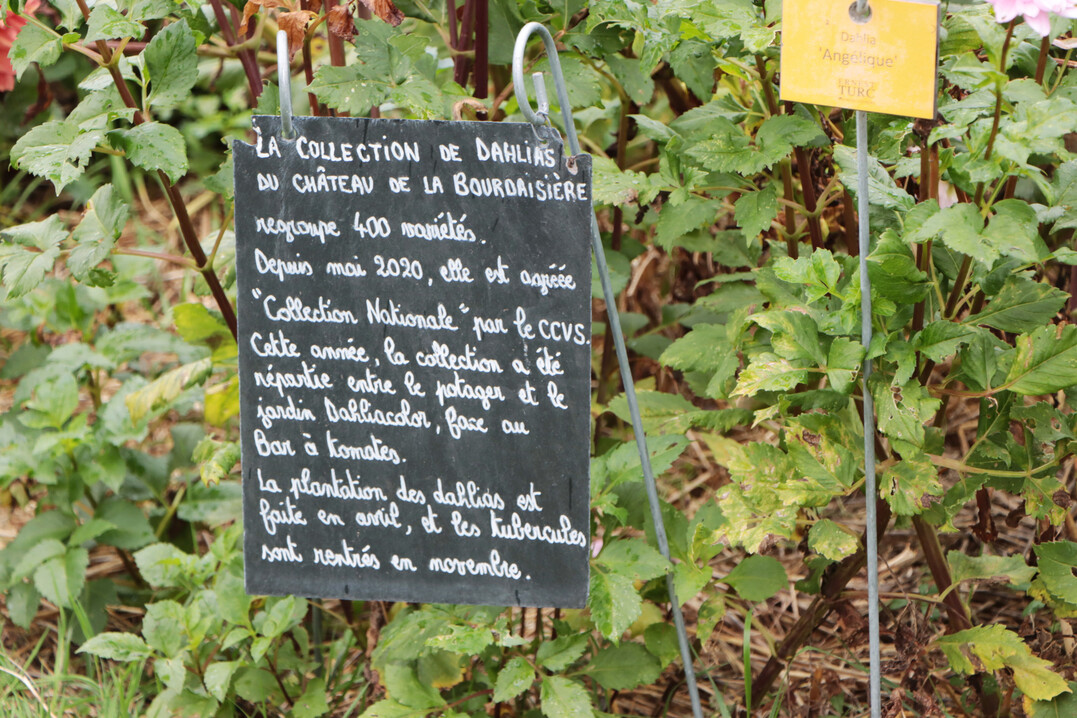 LA COLLECTION DE DAHLIAS
DU CHÂTEAU DE LA BOURDAISIÈRE
regroupe 400 variétés.
Depuis mai 2020, elle est agréée
"Collection Nationale" par le CCVS.
Cette année, la collection a été
répartie entre le potager et le
jardin Dahliacolor, face au
Bar à tomates.
La plantation des dahlias est
faite en avril, et les tubercules
sont rentrés en novembre.
Dahlia
'Angélique'
ERNEST
TURC